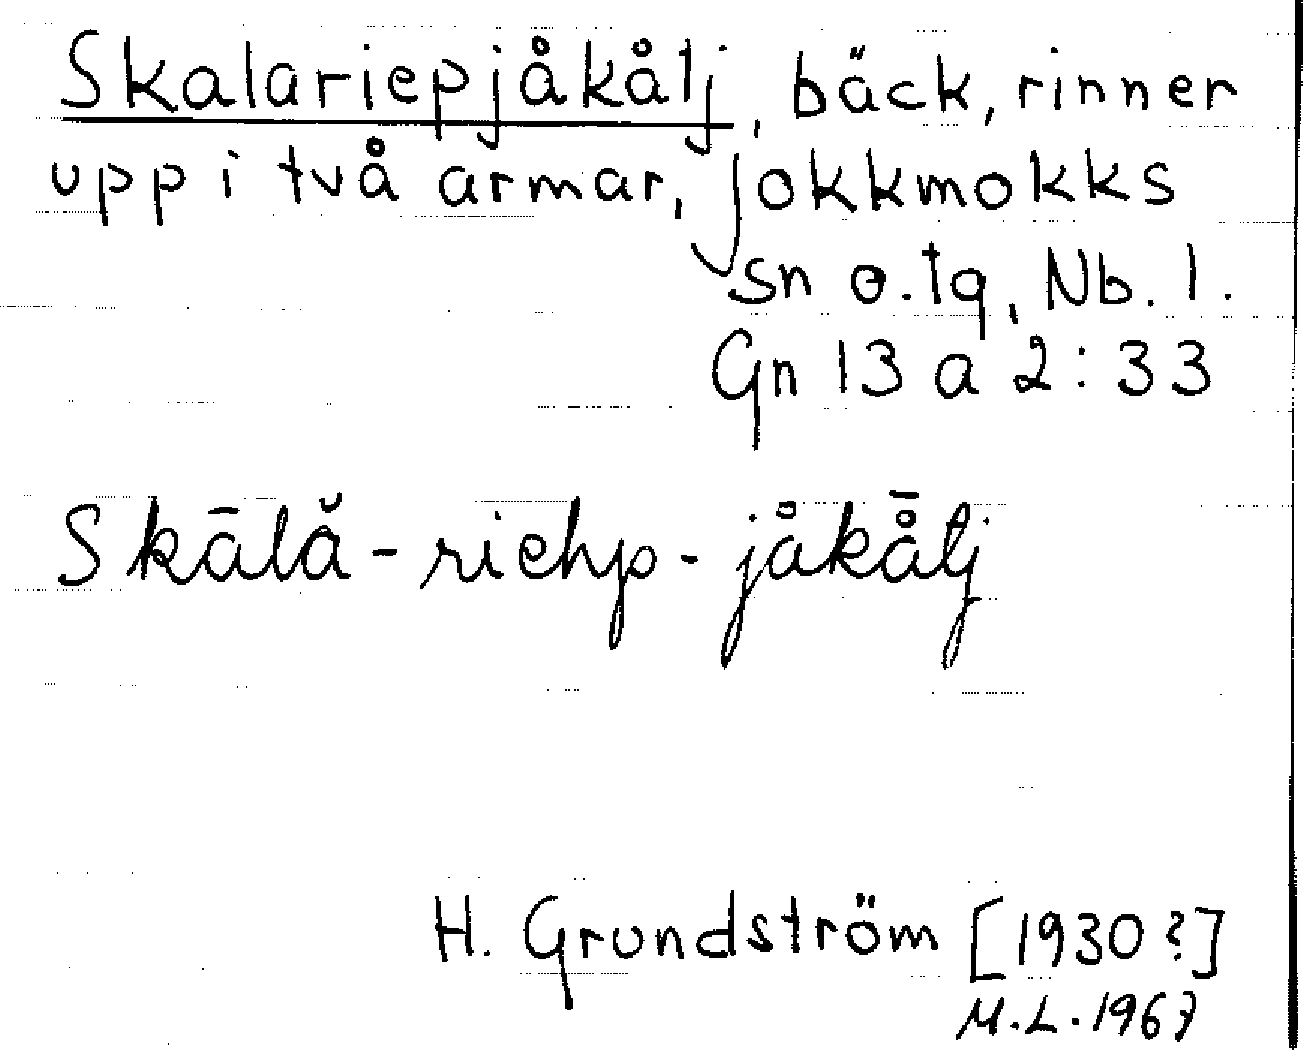 Skalariepjåkålj, bäck, rinner
upp i två armar, Jokkmokks
sn o. tg, Nb. l.
Gn 13 a 2:33
Skālă-riehp-jåkå̄lj
H. Grundström [1930?]
M.L. 1967